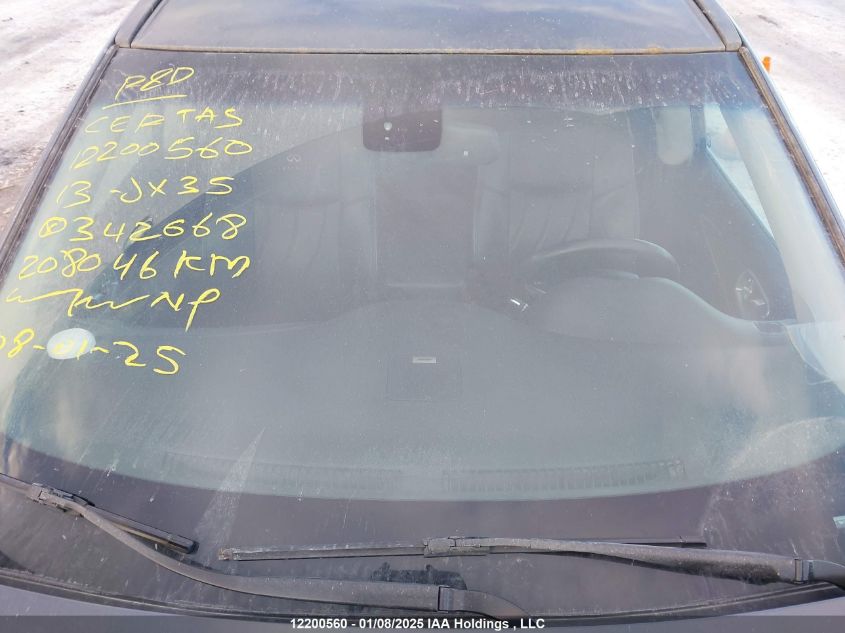 R&D
CERTAS
12200560
13-JX35
@342668
208046 KM
NP
08-01-25
12200560 - 01/08/2025 IAA Holdings , LLC